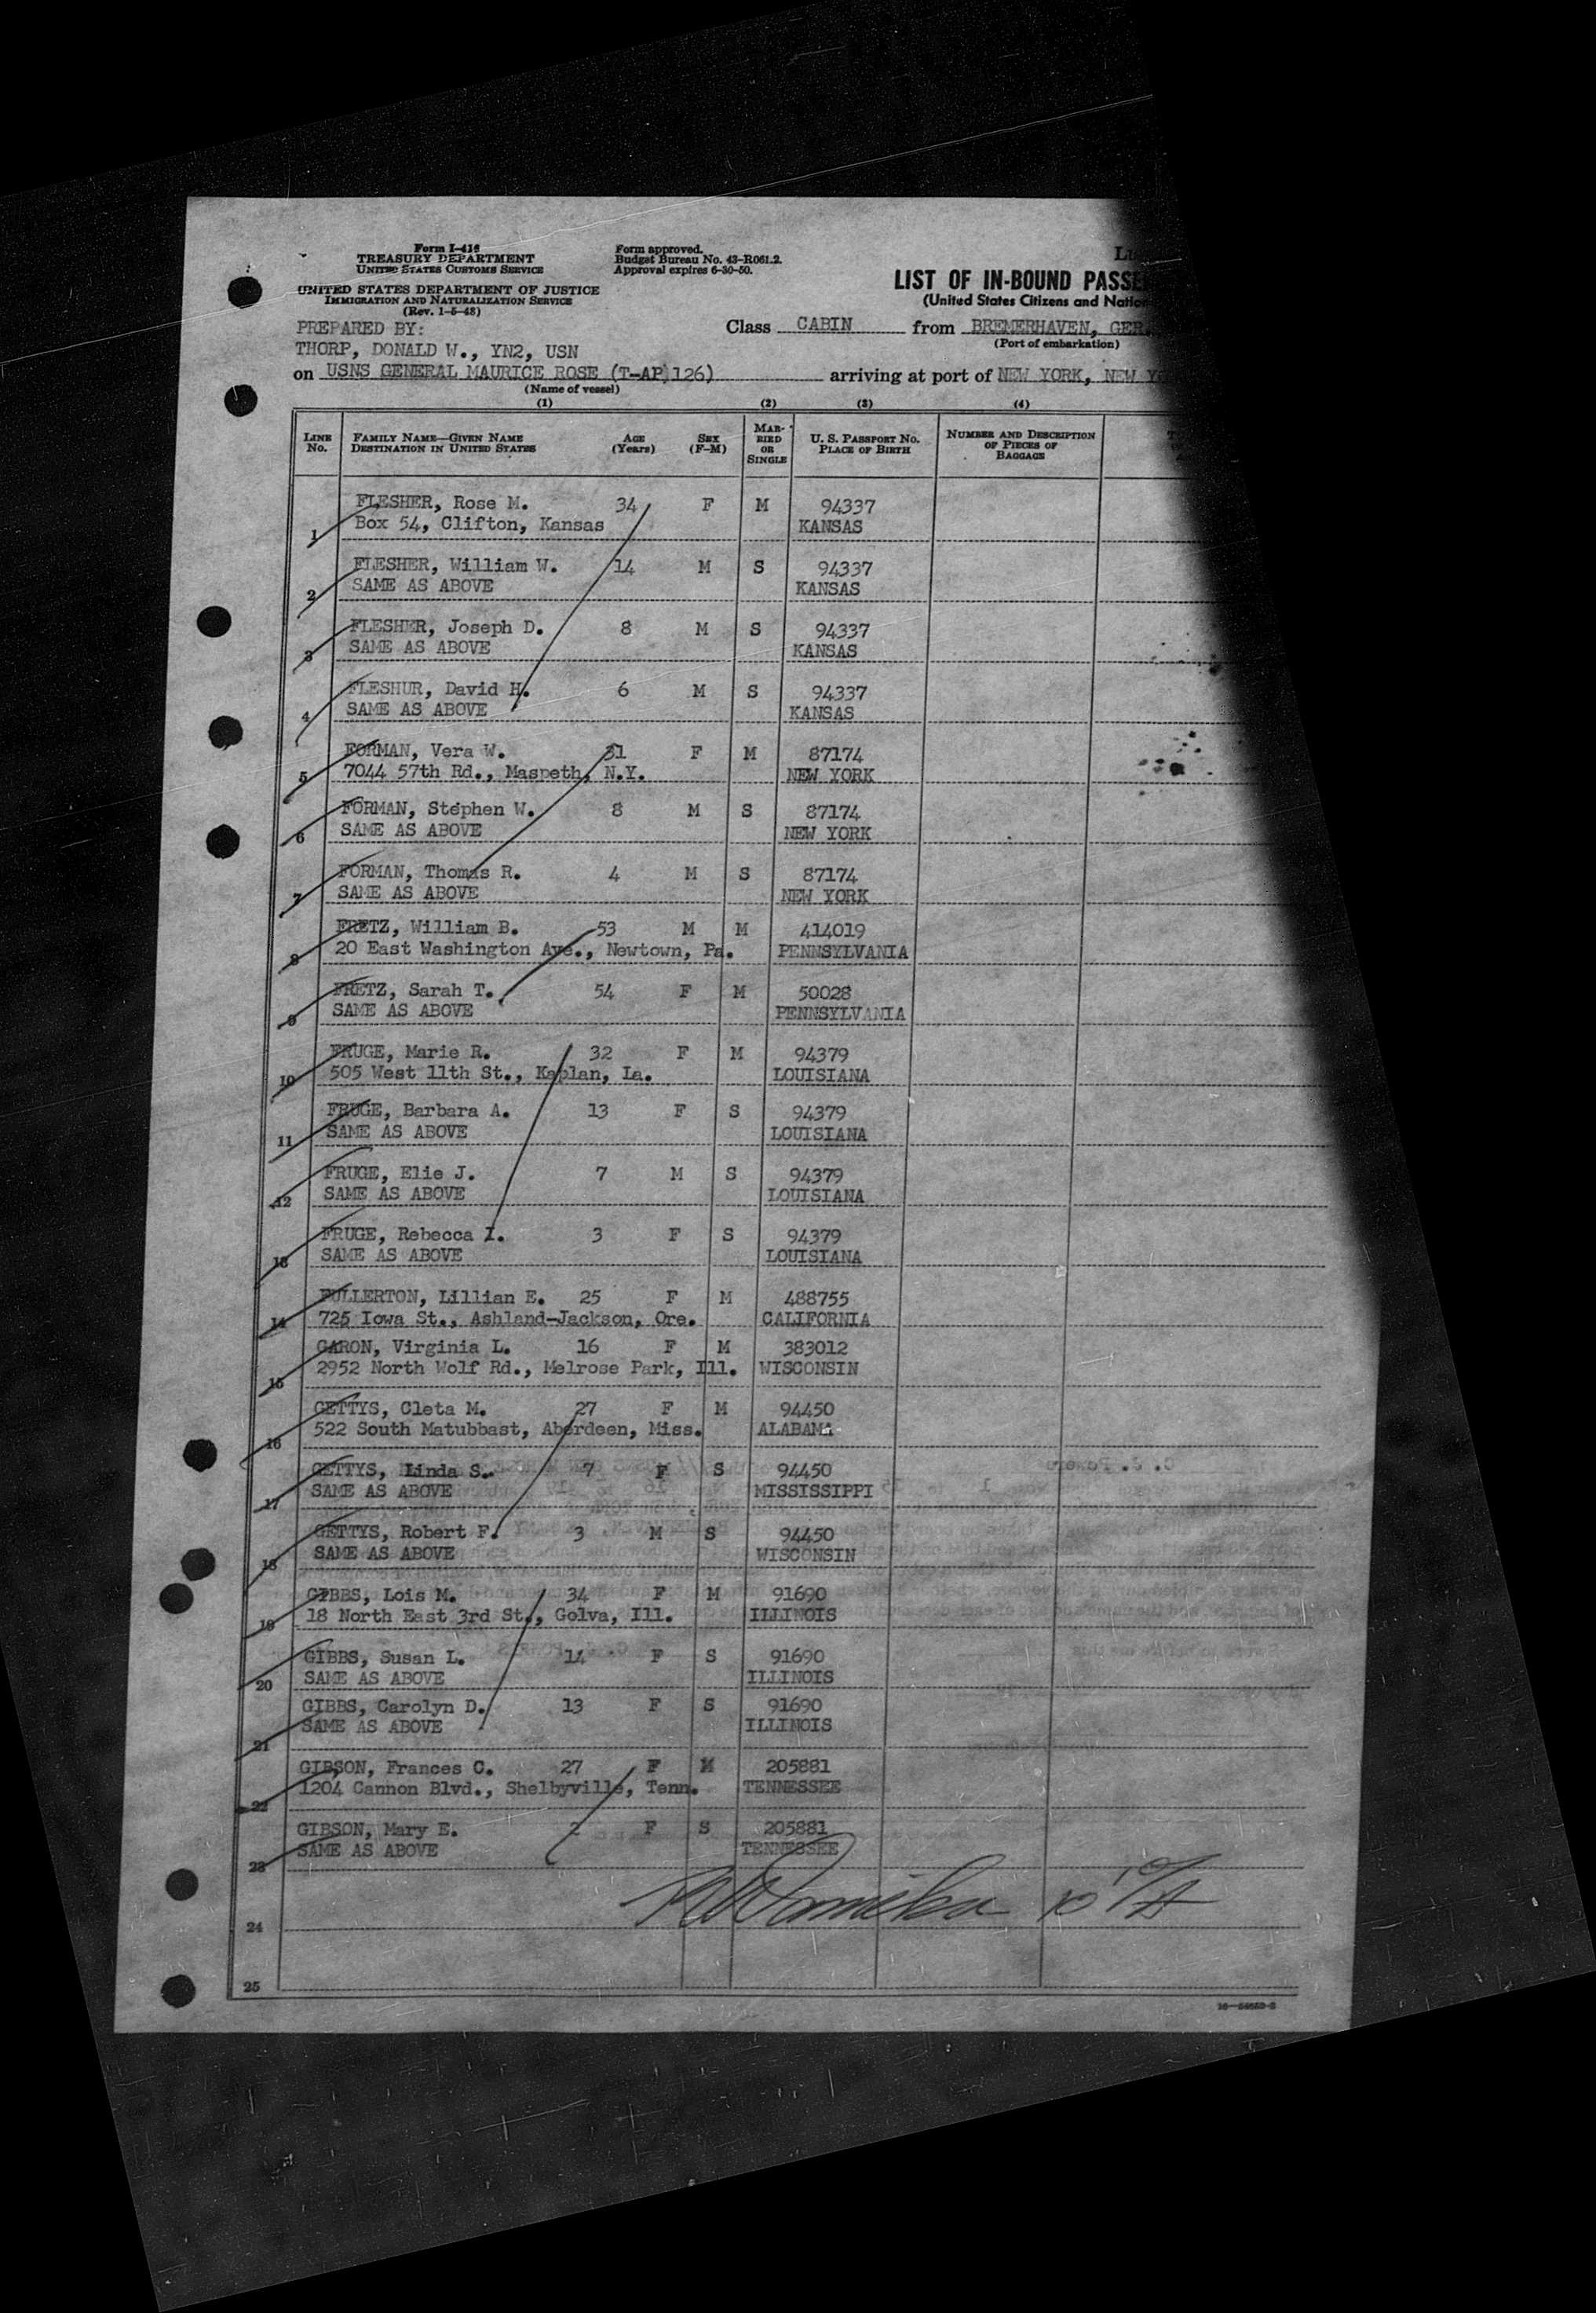 Form I-416
TREASURY DEPARTMENT
UNITED STATES CUSTOMS SERVICE
UNITED STATES DEPARTMENT OF JUSTICE
IMMIGRATION AND NATURALIZATION SERVICE
(Rev. 1-5-48)
Form approved.
Budget Bureau No. 43-R061.2.
Approval expires 6-30-50.
LIST OF IN-BOUND
(United States Citizens and
PREPARED BY:
THORP, DONALD W., YN2, USN
Class CABIN from BREMERHAVEN, GER.
(Port of embarkation)
on USNS GENERAL MAURICE ROSE (T-AP 126) arriving at port of NEW YORK, NEW
(Name of vessel)
(1) (2) (3) (4)
LINE No. FAMILY NAME—GIVEN NAME DESTINATION IN UNITED STATES AGE (Years) SEX (F-M) MARRIED OR SINGLE U. S. PASSPORT NO. PLACE OF BIRTH NUMBER AND DESCRIPTION OF PIECES OF BAGGAGE
1 FLESHER, Rose M. 34 F M 94337
Box 54, Clifton, Kansas KANSAS
2 FLESHER, William W. 14 M S 94337
SAME AS ABOVE KANSAS
3 FLESHER, Joseph D. 8 M S 94337
SAME AS ABOVE KANSAS
4 FLESHUR, David H. 6 M S 94337
SAME AS ABOVE KANSAS
5 FORMAN, Vera W. 31 F M 87174
7044 57th Rd., Maspeth, N.Y. NEW YORK
6 FORMAN, Stephen W. 8 M S 87174
SAME AS ABOVE NEW YORK
7 FORMAN, Thomas R. 4 M S 87174
SAME AS ABOVE NEW YORK
8 FRETZ, William B. 53 M M 414019
20 East Washington Ave., Newtown, Pa. PENNSYLVANIA
9 FRETZ, Sarah T. 54 F M 50028
SAME AS ABOVE PENNSYLVANIA
10 FRUGE, Marie R. 32 F M 94379
505 West 11th St., Kaplan, La. LOUISIANA
11 FRUGE, Barbara A. 13 F S 94379
SAME AS ABOVE LOUISIANA
12 FRUGE, Elie J. 7 M S 94379
SAME AS ABOVE LOUISIANA
13 FRUGE, Rebecca I. 3 F S 94379
SAME AS ABOVE LOUISIANA
14 FULLERTON, Lillian E. 25 F M 488755
725 Iowa St., Ashland-Jackson, Ore. CALIFORNIA
15 CARON, Virginia L. 16 F M 383012
2952 North Wolf Rd., Melrose Park, Ill. WISCONSIN
16 GETTYS, Cleta M. 27 F M 94450
522 South Matubbast, Aberdeen, Miss. ALABAMA
17 GETTYS, Linda S. 7 F S 94450
SAME AS ABOVE MISSISSIPPI
18 GETTYS, Robert F. 3 M S 94450
SAME AS ABOVE WISCONSIN
19 GIBBS, Lois M. 34 F M 91690
18 North East 3rd St., Golva, Ill. ILLINOIS
20 GIBBS, Susan L. 14 F S 91690
SAME AS ABOVE ILLINOIS
21 GIBBS, Carolyn D. 13 F S 91690
SAME AS ABOVE ILLINOIS
22 GIBSON, Frances C. 27 F M 205881
1204 Cannon Blvd., Shelbyville, Tenn. TENNESSEE
23 GIBSON, Mary E. 2 F S 205881
SAME AS ABOVE TENNESSEE
24
25